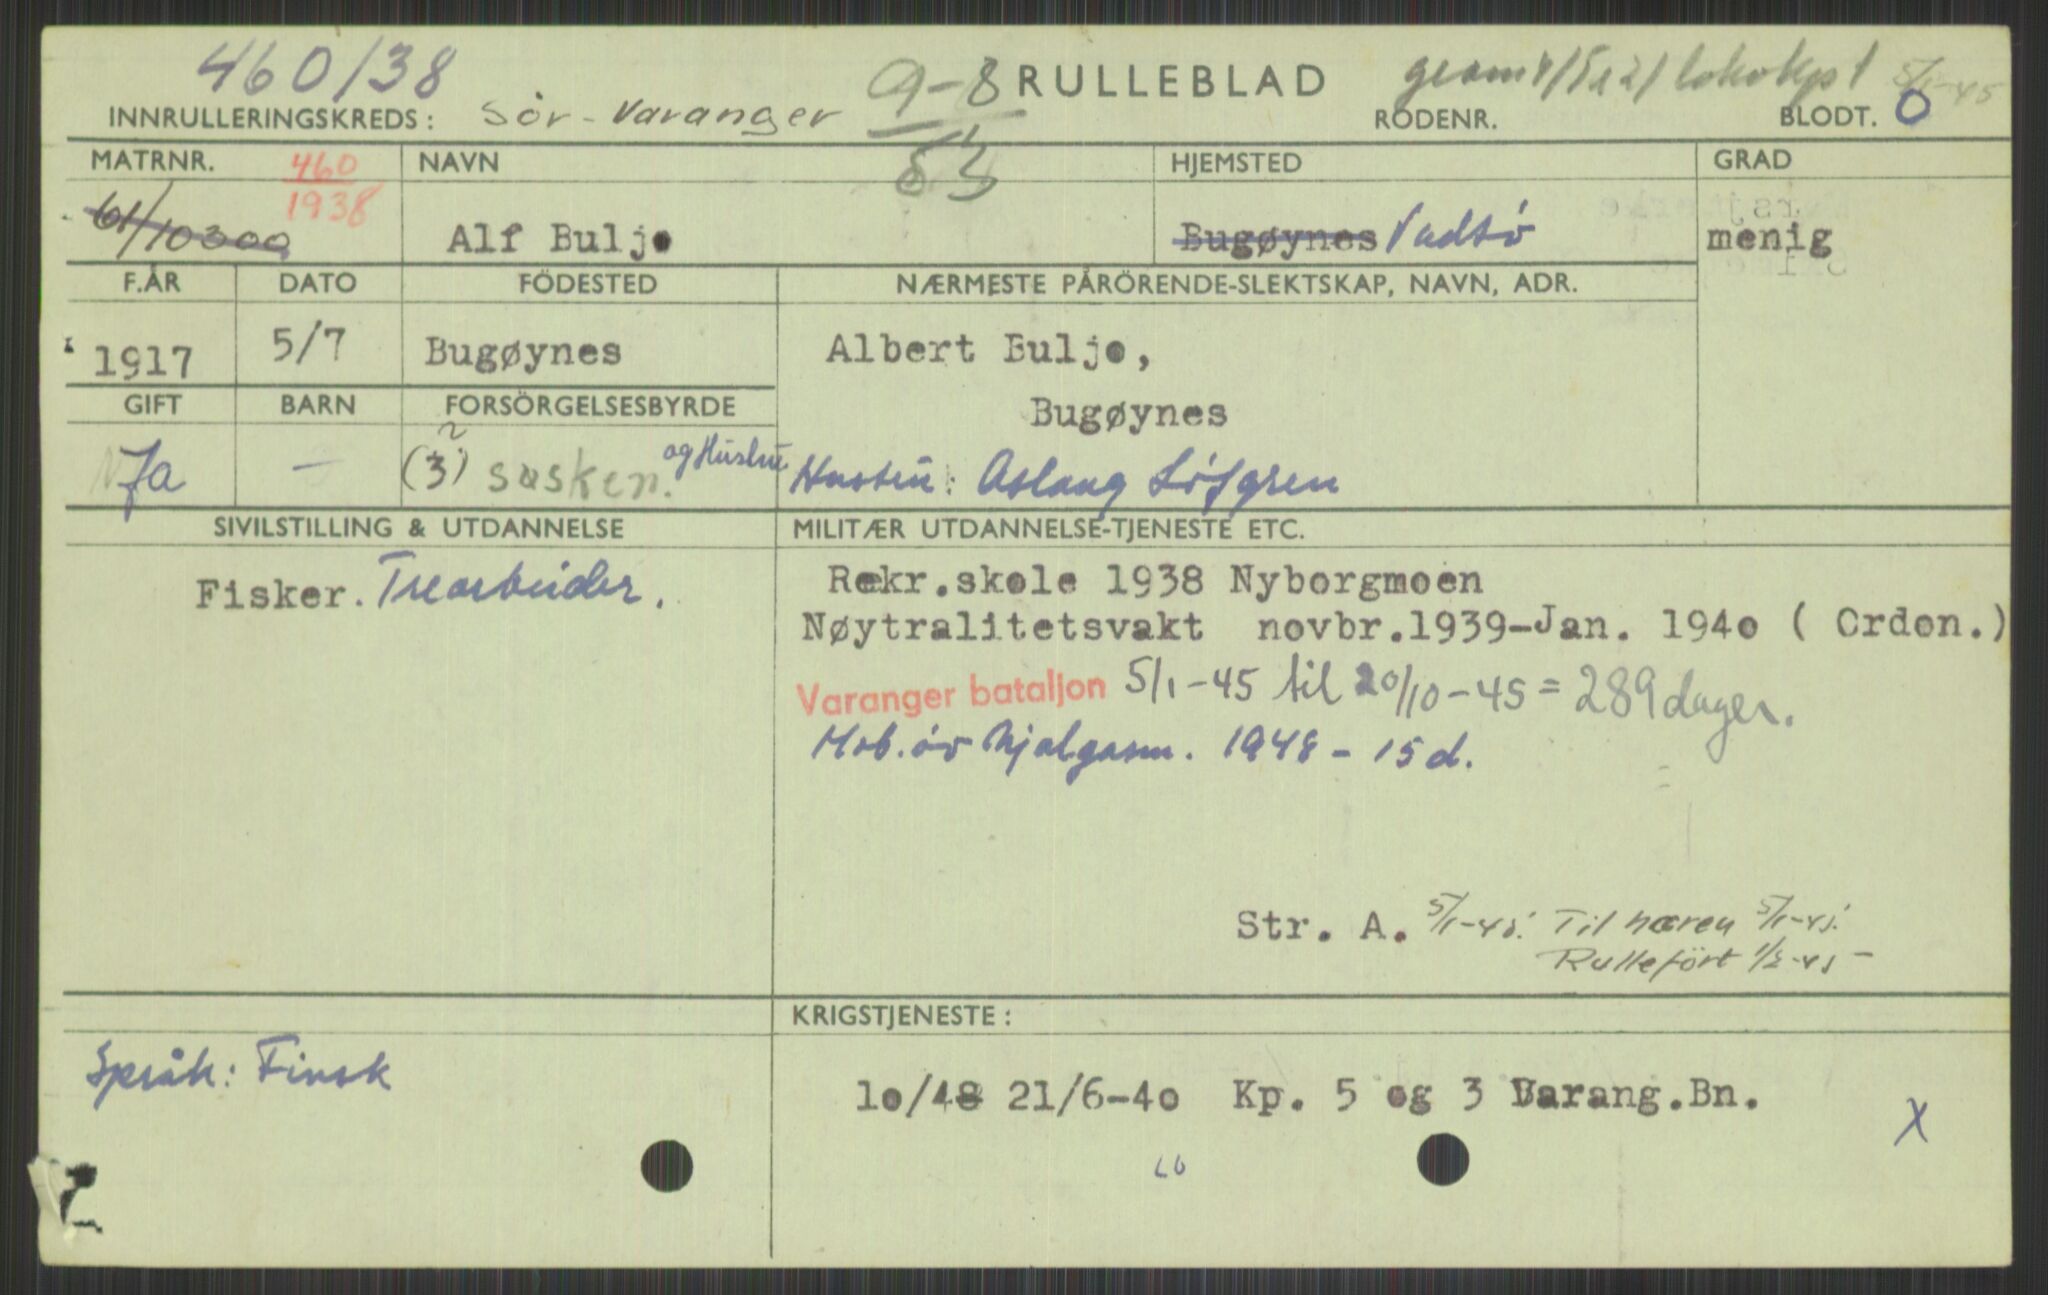 460/38
INNRULLERINGSKREDS: Sör-Varanger
9-8
53
RULLEBLAD
RODENR.
BLODT. O
5/1-45
MATRNR.
460
1938
61/10300
NAVN
Alf Buljo
HJEMSTED
Bugøynes Vadsö
GRAD
menig
F.ÅR
1917
DATO
5/7
FÖDESTED
Bugøynes
NÆRMESTE PÅRÖRENDE-SLEKTSKAP, NAVN, ADR.
Albert Buljo,
Bugøynes
Hustru: Aslaug Löfgren
GIFT
Ja
BARN
—
FORSÖRGELSESBYRDE
(3) søsken. og Hustru
SIVILSTILLING & UTDANNELSE
Fisker. Trearbeider.
MILITÆR UTDANNELSE-TJENESTE ETC.
Rekr.skole 1938 Nyborgmoen
Nøytralitetsvakt novbr.1939-Jan. 1940 ( Ordon.)
Varanger bataljon 5/1-45 til 20/10-45 = 289 dager.
Mob. öv 1948 - 15 d.
Str. A. 5/1-45. Til hæren 5/1-45.
Rulleført 1/2-45 -
Språk: Finsk
KRIGSTJENESTE:
10/48 21/6-40 Kp. 5 og 3 Varang.Bn.
X